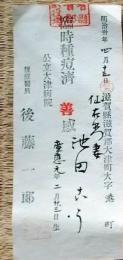 明治卅年四月十五日
滋賀縣滋賀郡大津町大字湊町
佐右衛門妻
池田こう
慶應元年二月廿三日生
臨時種痘濟
善感
公立大津病院
種痘醫員
後藤一郎